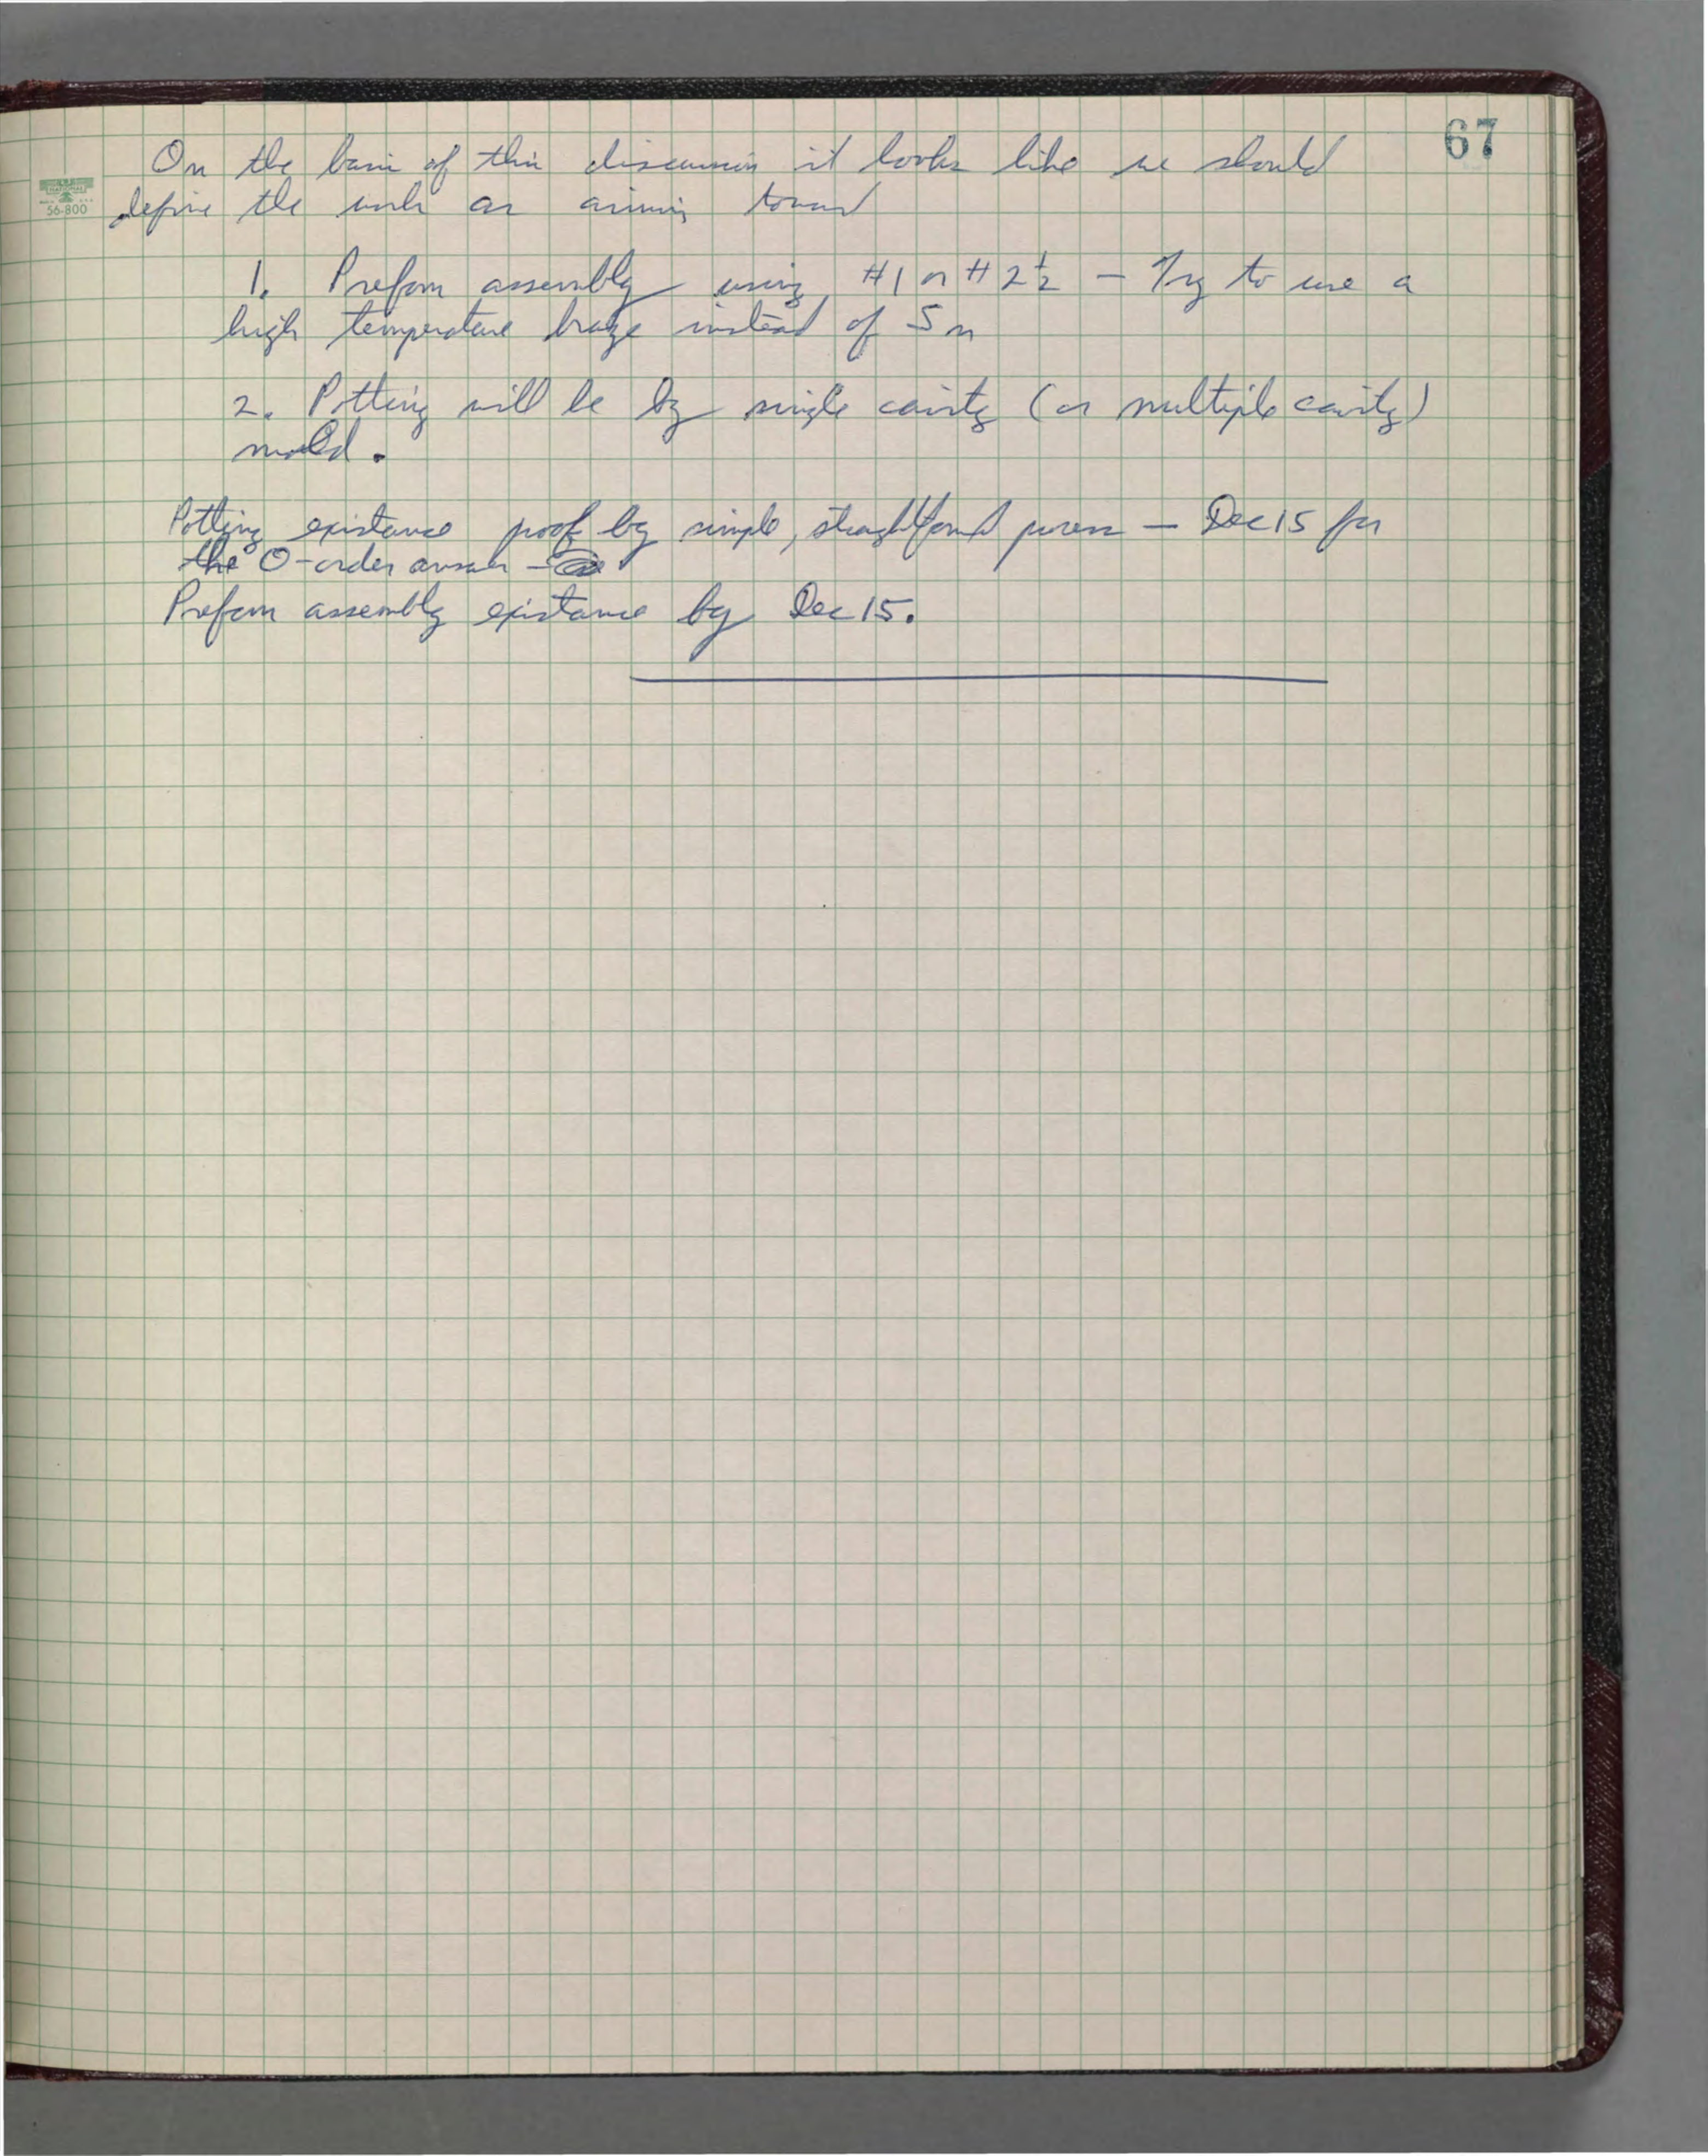 67
56-800
On the basis of this discussion it looks like we should
define the work as aiming toward
1. Preform assembly using #1 or #2½ — Try to use a
high temperature braze instead of Sn
2. Potting will be by single cavity (or multiple cavity)
mold.
Potting existance proof by simple, straightforward process — Dec 15 for
the 0-order answer -
Preform assembly existance by Dec 15.